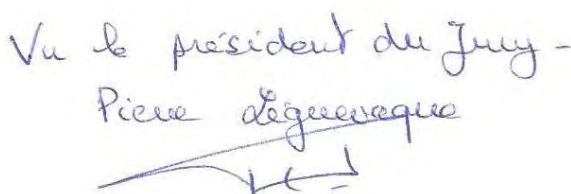 Vu le président du Jury -
Pierre Léguevaque